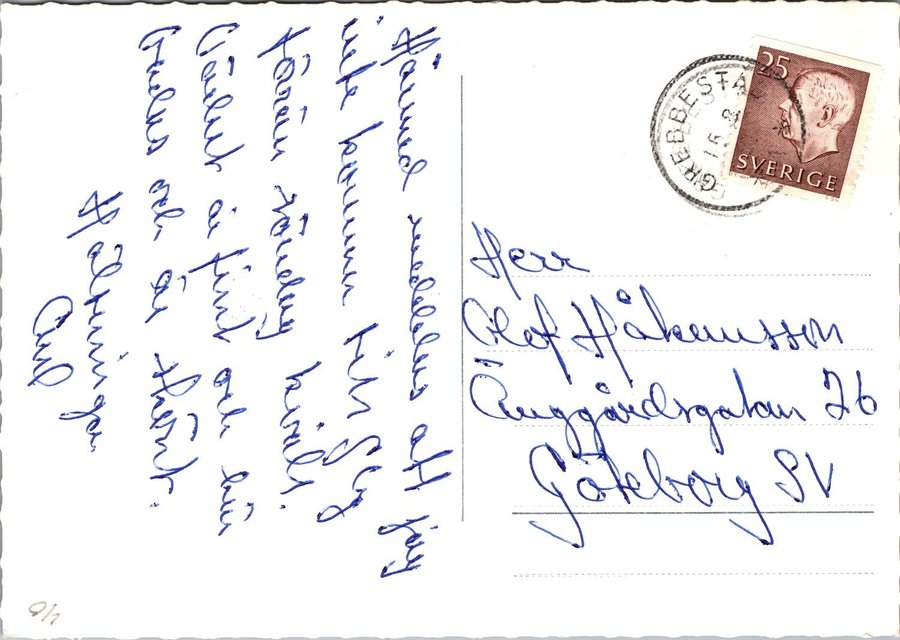 Härmed meddelas att jag
inte kommer till Gbg
förrän söndag kväll.
Vädret är fint och här
badas och är skönt.
Hälsningar
GREBBESTAD
15
25
SVERIGE
Herr
Olof Håkansson
Änggårdsgatan 26
Göteborg SV